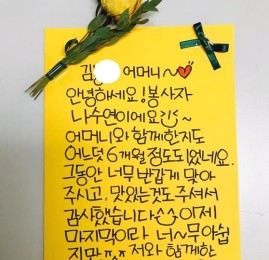 김 어머니~
안녕하세요! 봉사자
나수연이에요
어머니와 함께한지도
어느덧 6개월 정도 되었네요.
그동안 너무 반갑게 맞아
주시고, 맛있는것도 주셔서
감사했습니다 이제
마지막이라 너~무 아쉽
지만 ㅠㅠ 저와 함께한